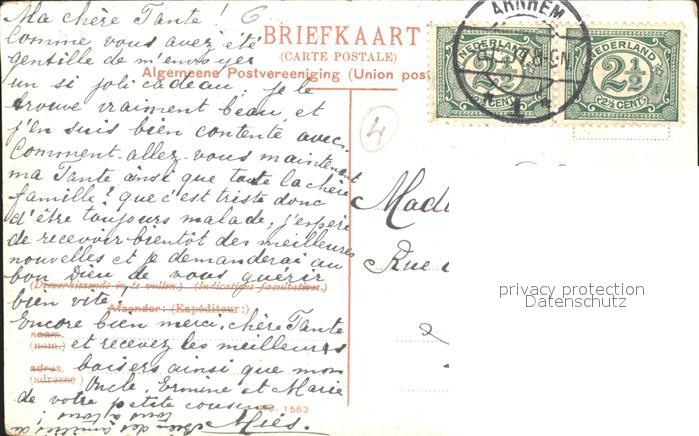 Ma chère Tante !
Comme vous avez été
gentille de m'envoyer
un si joli cadeau; je le
trouve vraiment beau, et
j'en suis bien contente avec.
Comment allez-vous maintenant
ma Tante ainsi que toute la chère
famille? que c'est triste donc
d'être toujours malade, j'espère
de recevoir bientôt des meilleures
nouvelles et je demanderai au
bon Dieu de vous guérir
bien vite.
Encore bien merci, chère Tante
et recevez les meilleurs
baisers ainsi que mon
Oncle, Ermine et Marie
de votre petite cousine
Miés.
BRIEFKAART
(CARTE POSTALE)
Algemeene Postvereeniging (Union post
(Dienstaanwijzing in te vullen.) (Indications facultatives.)
Afzender: (Expéditeur:)
naam.
(nom.)
adres.
(adresse)
1563
ARNHEM
NEDERLAND
2½
(2½ CENT)
NEDERLAND
2½
(2½ CENT)
4
Mad
Rue
privacy protection
Datenschutz